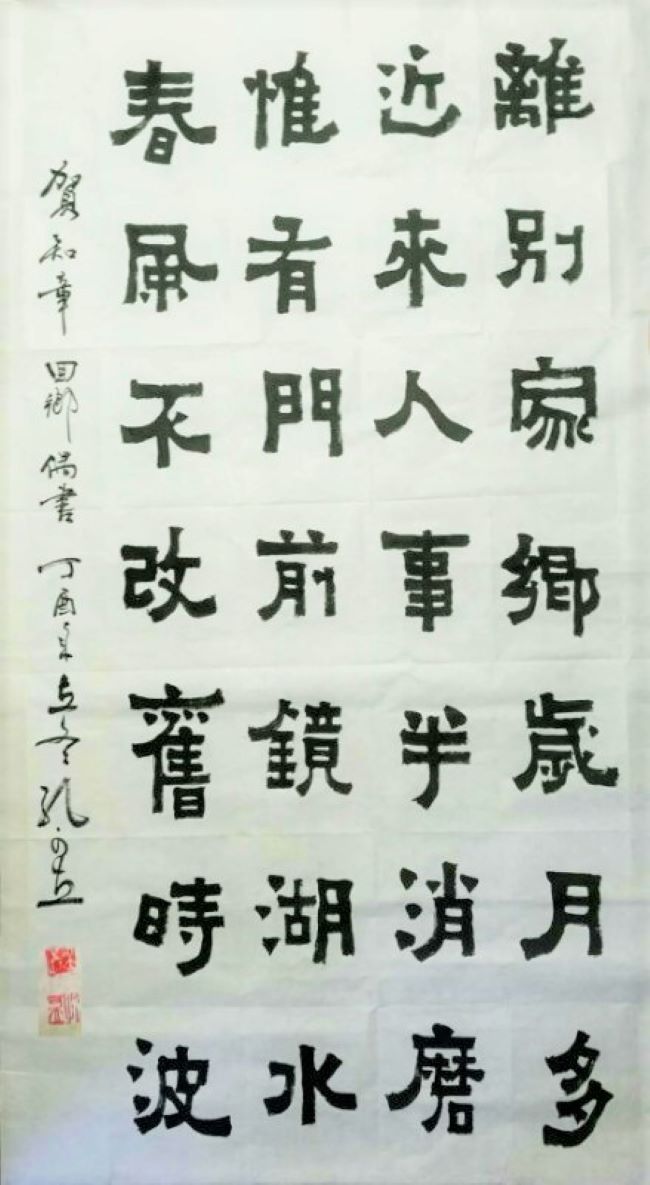 離別家鄉歲月多
近來人事半消磨
惟有門前鏡湖水
春風不改舊時波
賀知章 回鄉偶書 丁酉年立冬